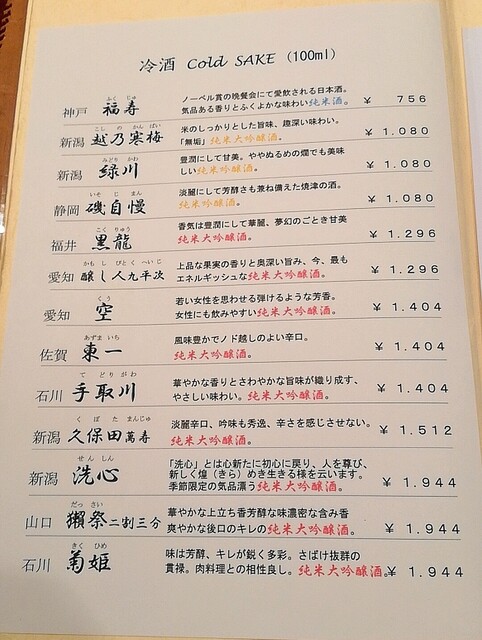 冷酒 Cold SAKE (100ml)
ふく じゅ
神戸 福寿 ノーベル賞の晩餐会にて愛飲される日本酒。 ¥ 756
気品ある香りとふくよかな味わい純米酒。
こし の かん ばい
新潟 越乃寒梅 米のしっかりとした旨味、趣深い味わい。 ¥ 1.080
「無垢」純米大吟醸酒。
みどり かわ
新潟 緑川 豊潤にして甘美。ややぬるめの燗でも美味 ¥ 1.080
しい純米吟醸酒。
いそ じ まん
静岡 磯自慢 淡麗にして芳醇さも兼ね備えた焼津の酒。 ¥ 1.080
純米吟醸酒。
こく りゅう
福井 黒龍 香気は豊潤にして華麗、夢幻のごとき甘美 ¥ 1.296
純米大吟醸酒。
かも し びとく へいじ
愛知 醸し人九平次 上品な果実の香りと奥深い旨み、今、最も ¥ 1.296
エネルギッシュな純米大吟醸酒。
くう
愛知 空 若い女性を思わせる弾けるような芳香。 ¥ 1.404
女性にも飲みやすい純米大吟醸酒。
あずま いち
佐賀 東一 風味豊かでノド越しのよい辛口。 ¥ 1.404
純米大吟醸酒。
て どり がわ
石川 手取川 華やかな香りとさわやかな旨味が織り成す、 ¥ 1.404
やさしい味わい。純米大吟醸酒。
く ぼ た まんじゅ
新潟 久保田萬寿 淡麗辛口、吟味も秀逸、辛さを感じさせない。 ¥ 1.512
純米大吟醸酒。
せん しん
新潟 洗心 「洗心」とは心新たに初心に戻り、人を尊び、
新しく煌（きら）めき生きる様を云います。 ¥ 1.944
季節限定の気品漂う純米大吟醸酒。
だっ さい
山口 獺祭二割三分 華やかな上立ち香芳醇な味濃密な含み香 ¥ 1.944
爽やかな後口のキレの純米大吟醸酒。
きく ひめ
石川 菊姫 味は芳醇、キレが鋭く多彩。さばけ抜群の
貫禄。肉料理との相性良し。純米大吟醸酒。 ¥ 1.944